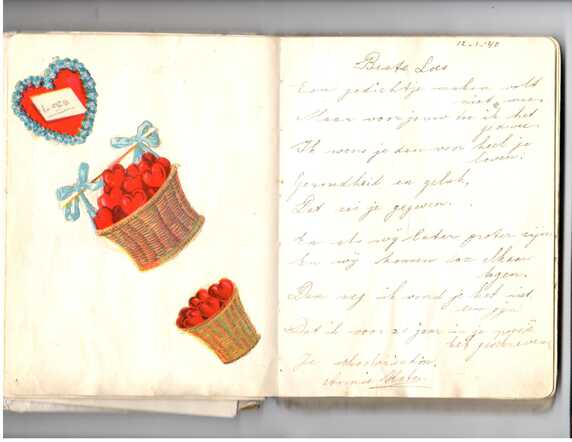 Loes
12-1-'40
Beste Loes
Een gedichtje maken valt
niet mee.
Maar voor jouw doe ik het
Ik wens je dan voor heel je
leven.
Gezondheid en geluk,
Dat zij je gegeven.
En als wij later groter zijn
En wij komen
tegen.
Dan zeg ik vond je het niet
een
Dat ik voor 20 jaar in je poësie
heb geschreven
Je schoolvriendin.
Annie